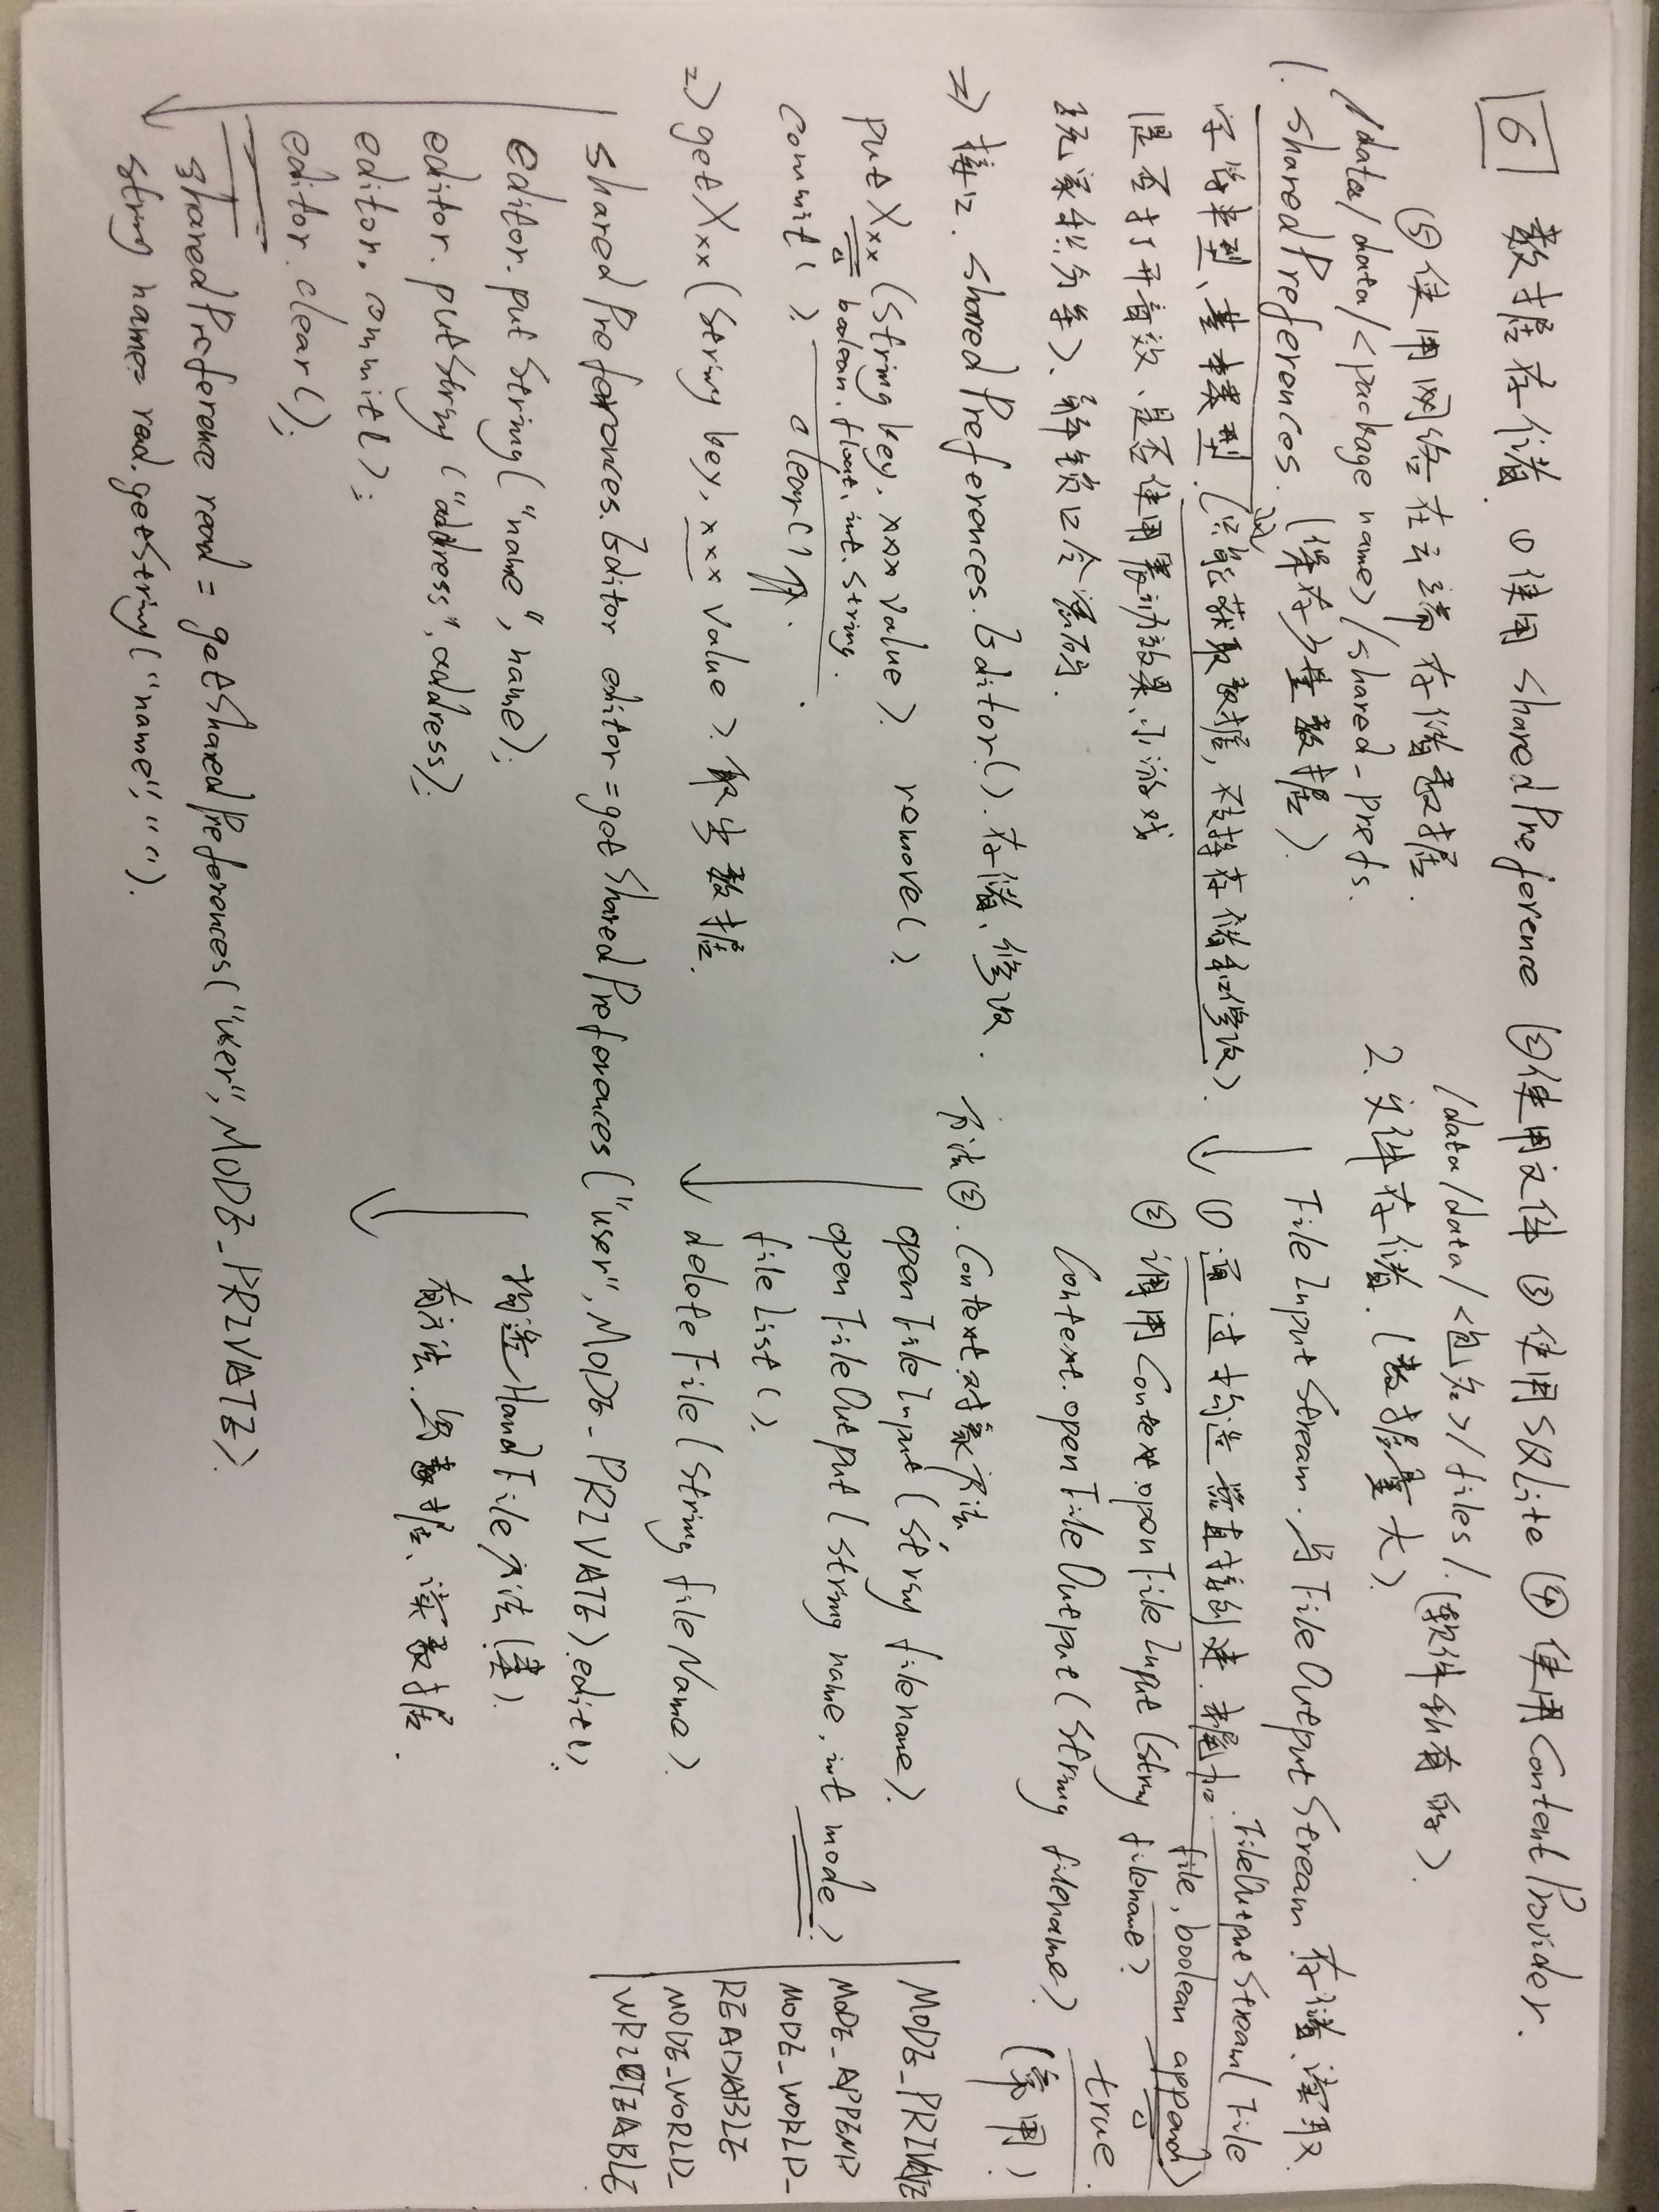 6 数据存储. ① 使用 SharedPreference ②使用文件 ③ 使用SQLite ④ 使用ContentProvider.
⑤ 使用网络在云端存储数据.
/data/data/<package name>/shared_prefs.
1. SharedPreferences. (保存少量数据).
字符串型、基本类型. (只能获取数据, 不支持存储和修改).
是否打开音效、是否使用震动效果、小游戏
玩家积分等)、解锁口令密码.
=> 接口. SharedPreferences.Editor(). 存储、修改.
putXxx (String key. xxx value). remove().
boolean. float. int. String.
commit(). clear().
=> getXxx (String key, xxx value). 取出数据.
SharedPreferences.Editor editor = getSharedPreferences("user", MODE_PRIVATE).edit();
editor.putString("name", name);
editor.putString("address", address);
editor.commit();
editor.clear();
SharedPreference read = getSharedPreferences("user", MODE_PRIVATE).
String name = read.getString("name", "").
/data/data/<包名>/files/. (软件私有的)
2. 文件存储. (数据量大).
FileInputStream. 与 FileOutputStream 存储、读取.
① 通过构造器直接创建. 追加. FileOutputStream(File
file, boolean append)
② 调用Context.openFileInput(String filename) true.
Context.openFileOutput(String filename) (常用.)
方法②. Context对象方法
openFileInput(String filename).
openFileOutput(String name, int mode).
fileList().
deleteFile(String fileName).
MODE_PRIVATE
MODE_APPEND
MODE_WORLD_
READABLE
MODE_WORLD_
WRITEABLE
构造HandFile方法(类).
有方法. 写数据、读数据.